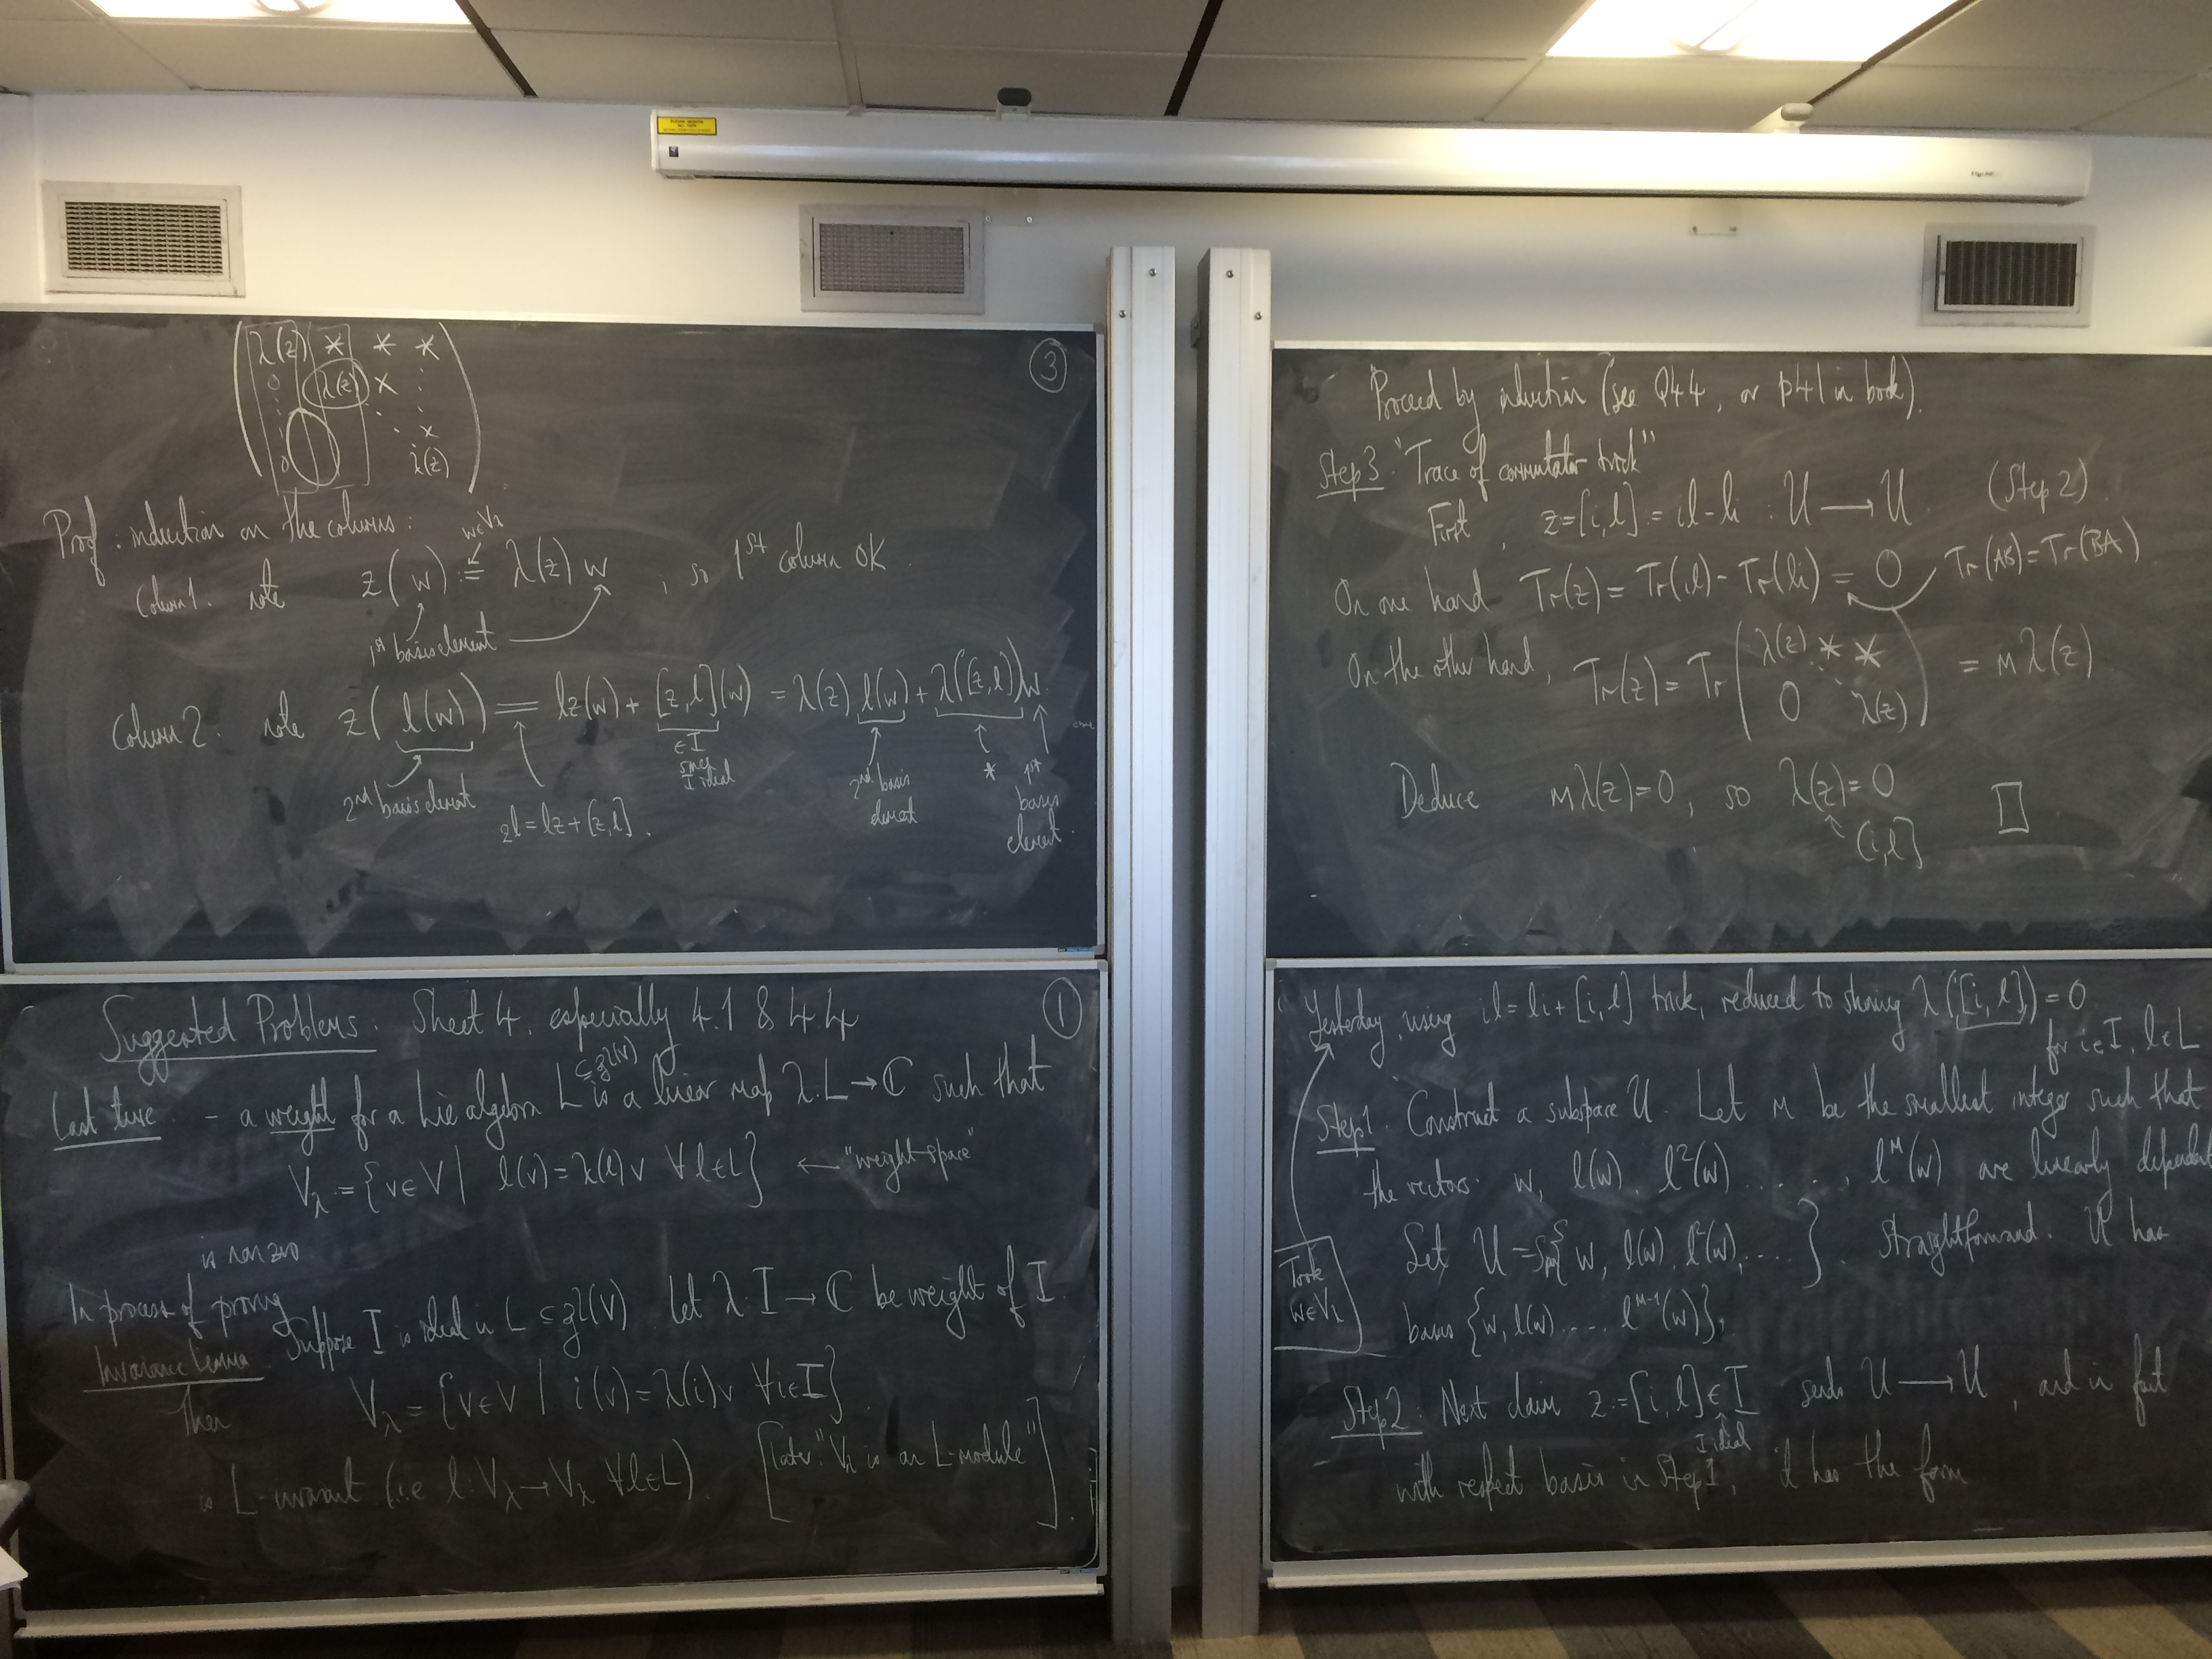 ①
Suggested Problems. Sheet 4, especially 4.1 & 4.4
Last time - a weight for a Lie algebra L ⊆ gl(V) is a linear map λ: L → ℂ such that
V_λ := {v ∈ V | l(v) = λ(l)v ∀ l ∈ L} ← "weight-space"
is nonzero
In process of proving
Invariance Lemma. Suppose I is ideal in L ⊆ gl(V) Let λ: I → ℂ be weight of I.
Then V_λ = {v ∈ V | i(v) = λ(i)v ∀ i ∈ I}
is L-invariant (i.e. l: V_λ → V_λ ∀ l ∈ L). [later "V_λ is an L-module"].
Yesterday, using il = li + [i, l] trick, reduced to showing λ([i, l]) = 0
for i ∈ I, l ∈ L
Took w ∈ V_λ
Step 1. Construct a subspace U. Let m be the smallest integer such that
the vectors w, l(w), l²(w) ....., l^m(w) are linearly dependent
Set U = Sp{w, l(w), l²(w), ....}. Straightforward. U has
basis {w, l(w) .... l^{m-1}(w)}.
Step 2. Next claim z := [i, l] ∈ I sends U → U, and in fact
I ideal
with respect basis in Step I, it has the form
③
( λ(z) * * *
0 λ(z) * ⋮
⋮ ⋱ *
0 λ(z) )
Proof. induction on the columns:
w ∈ V_λ
Column 1. note z(w) = λ(z) w, so 1st column OK.
1st basis element
Column 2. note z(l(w)) = lz(w) + [z, l](w) = λ(z) l(w) + λ([z, l])w
∈ I since I ideal
2nd basis element
zl = lz + [z, l].
2nd basis element
*
1st basis element.
Proceed by induction (see Q4.4, or p41 in book).
Step 3. "Trace of commutator trick"
First, z = [i, l] = il - li : U → U (Step 2).
On one hand Tr(z) = Tr(il) - Tr(li) = 0 Tr(AB) = Tr(BA)
On the other hand, Tr(z) = Tr ( λ(z) * * ⋱ 0 λ(z) ) = m λ(z)
Deduce mλ(z) = 0, so λ(z) = 0 □
[i, l]